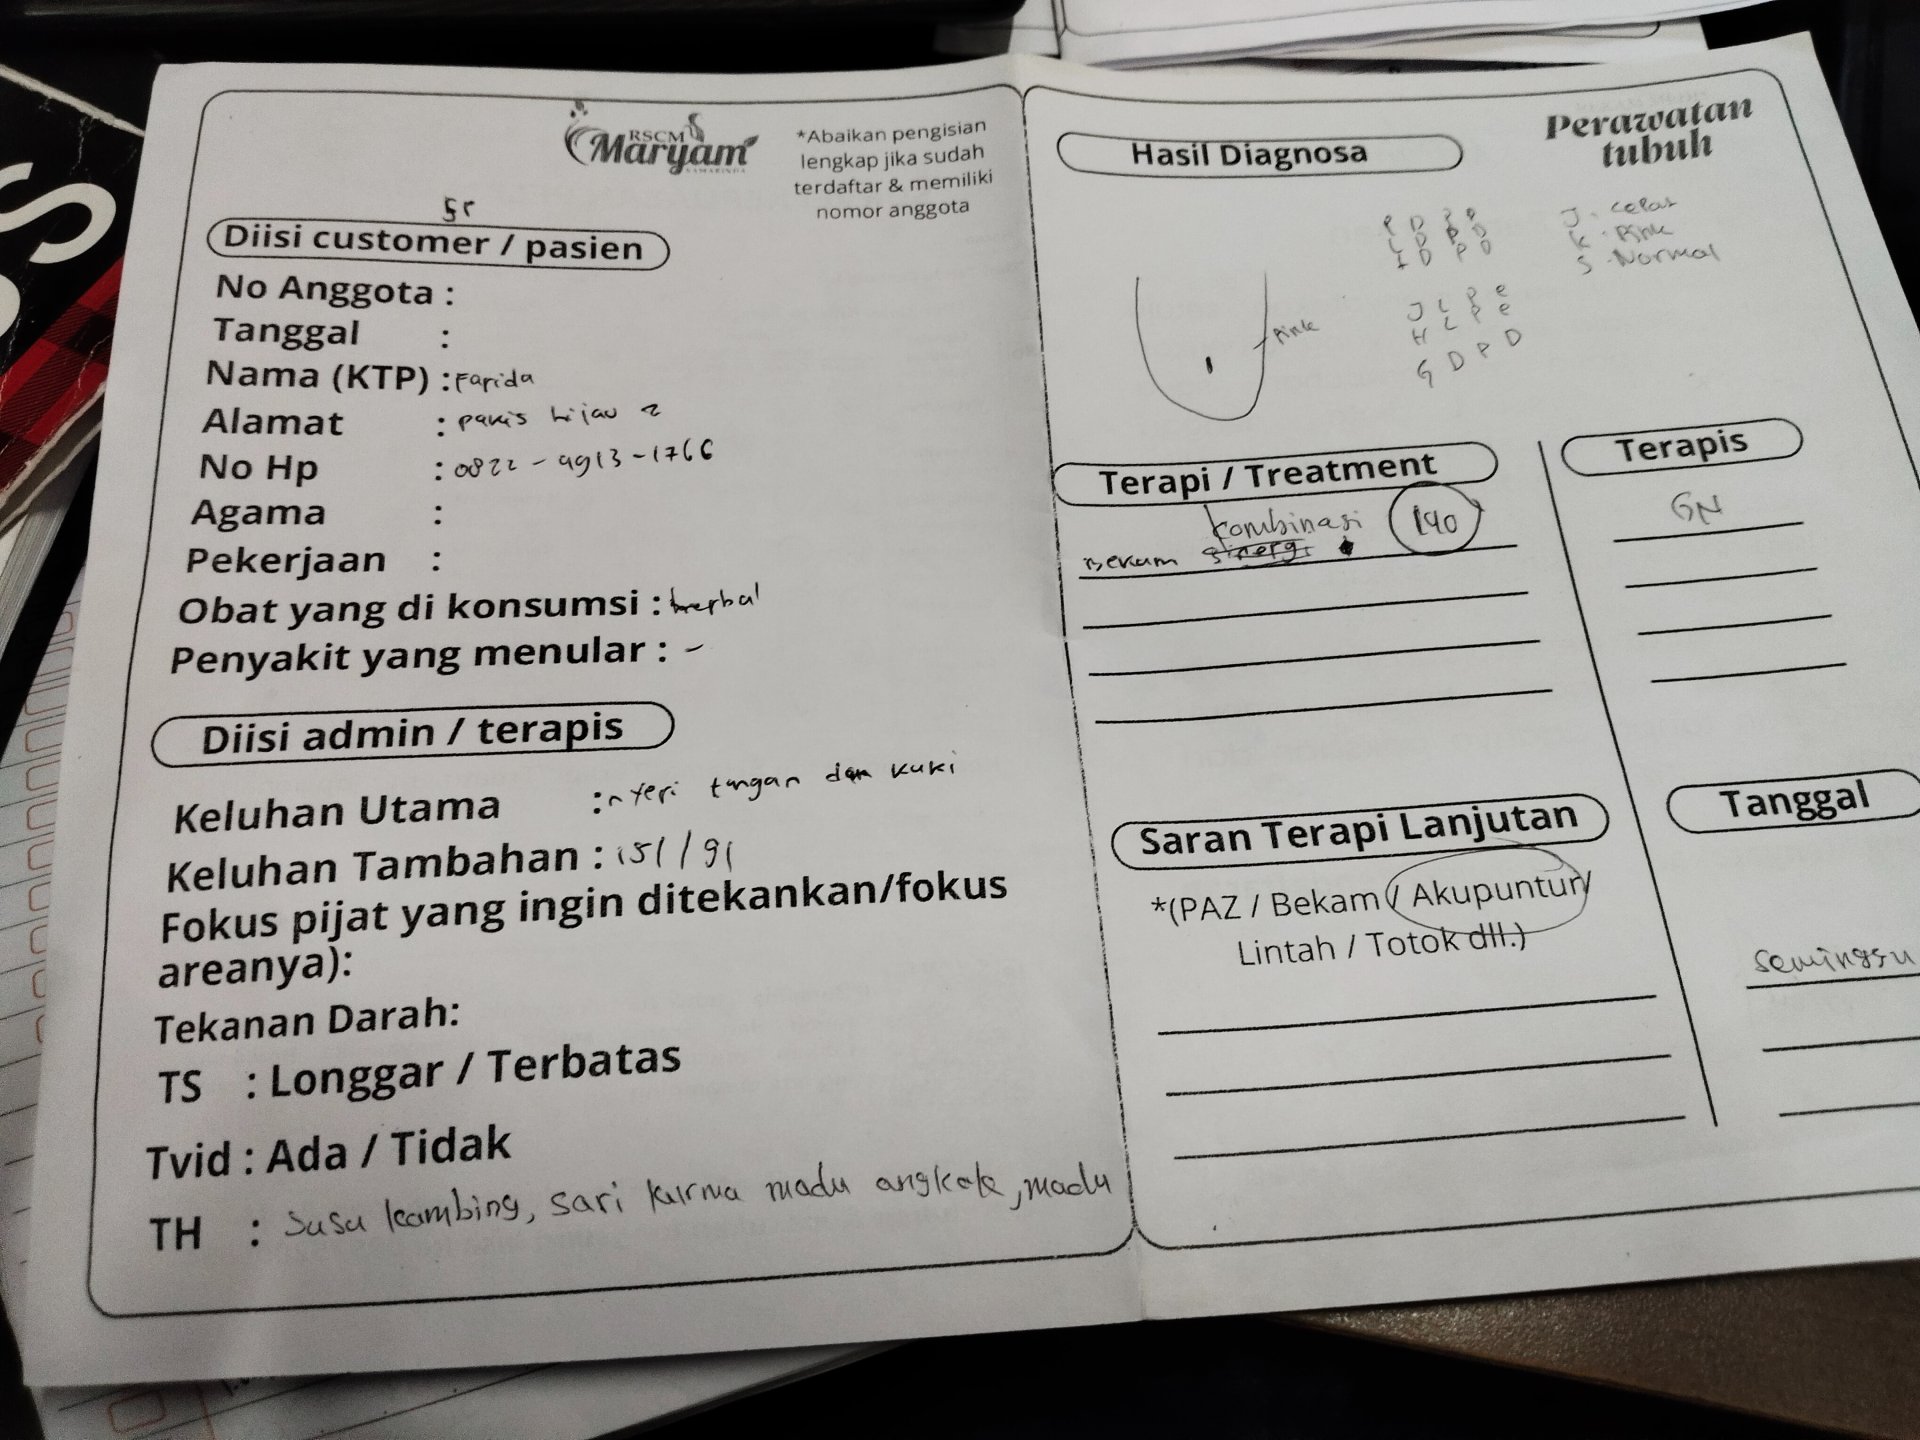 RSCM
Maryam
SAMARINDA
*Abaikan pengisian
lengkap jika sudah
terdaftar & memiliki
nomor anggota
Diisi customer / pasien
No Anggota :
Tanggal :
Nama (KTP) : Farida
Alamat : pakis hijau 2
No Hp : 0822-9913-1766
Agama :
Pekerjaan :
Obat yang di konsumsi : herbal
Penyakit yang menular : -
Diisi admin / terapis
Keluhan Utama : nyeri tangan dan kuki
Keluhan Tambahan : 151/91
Fokus pijat yang ingin ditekankan/fokus
areanya):
Tekanan Darah:
TS : Longgar / Terbatas
Tvid : Ada / Tidak
TH : Susu kambing, sari kurma madu angkak, madu
Perawatan
tubuh
Hasil Diagnosa
J. cepat
K. Pink
S. Normal
L D P D
I D P D
J L P e
H L P e
G D P D
Pink
Terapi / Treatment
kombinasi 140
Bekam sinergi
Terapis
GN
Saran Terapi Lanjutan
*(PAZ / Bekam / Akupuntur/
Lintah / Totok dll.)
Tanggal
seminggu